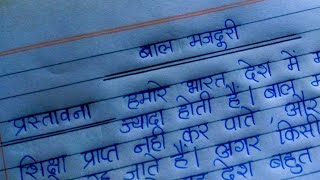 बाल मजदूरी
प्रस्तावना हमारे भारत देश में
ज्यादा होती है। बाल
शिक्षा प्राप्त नही कर पाते, और
जाते हैं। अगर किसी
देश बहुत